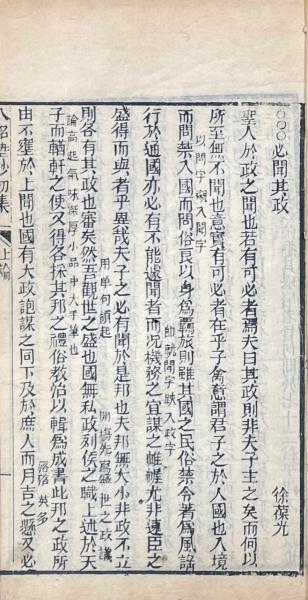 必聞其政
徐葆光
聖人於政之聞也若有可必者焉夫曰其政則非夫子主之矣而何以
所至無不聞也意實有可必者在乎子禽意謂君子之於人國也入境
以問字襯入聞字
而問禁入國而問俗良以身為羈旅則雖其國之民俗禁令著為風謠
即就聞字跌入政字
行於通國亦必有不能遽聞者而况機務之宜謀之帷幄尤非逺臣之
盛得而與者乎異哉夫子之必有聞於是邦也夫邦無大小非政不立
用單句領起
則各有其政也審矣然吾觀世之盛也國無私政列侯之職上述於天
開塲先寫盛世之政議
論高超氣味深厚小品中大手筆也
子而輶軒之使又得各採其邦之禮俗教治以輯為成書此邦之政所
由不壅於上聞也國有大政詢謀之同下及於庶人而月吉之懸又必
八名塾鈔初集
上論